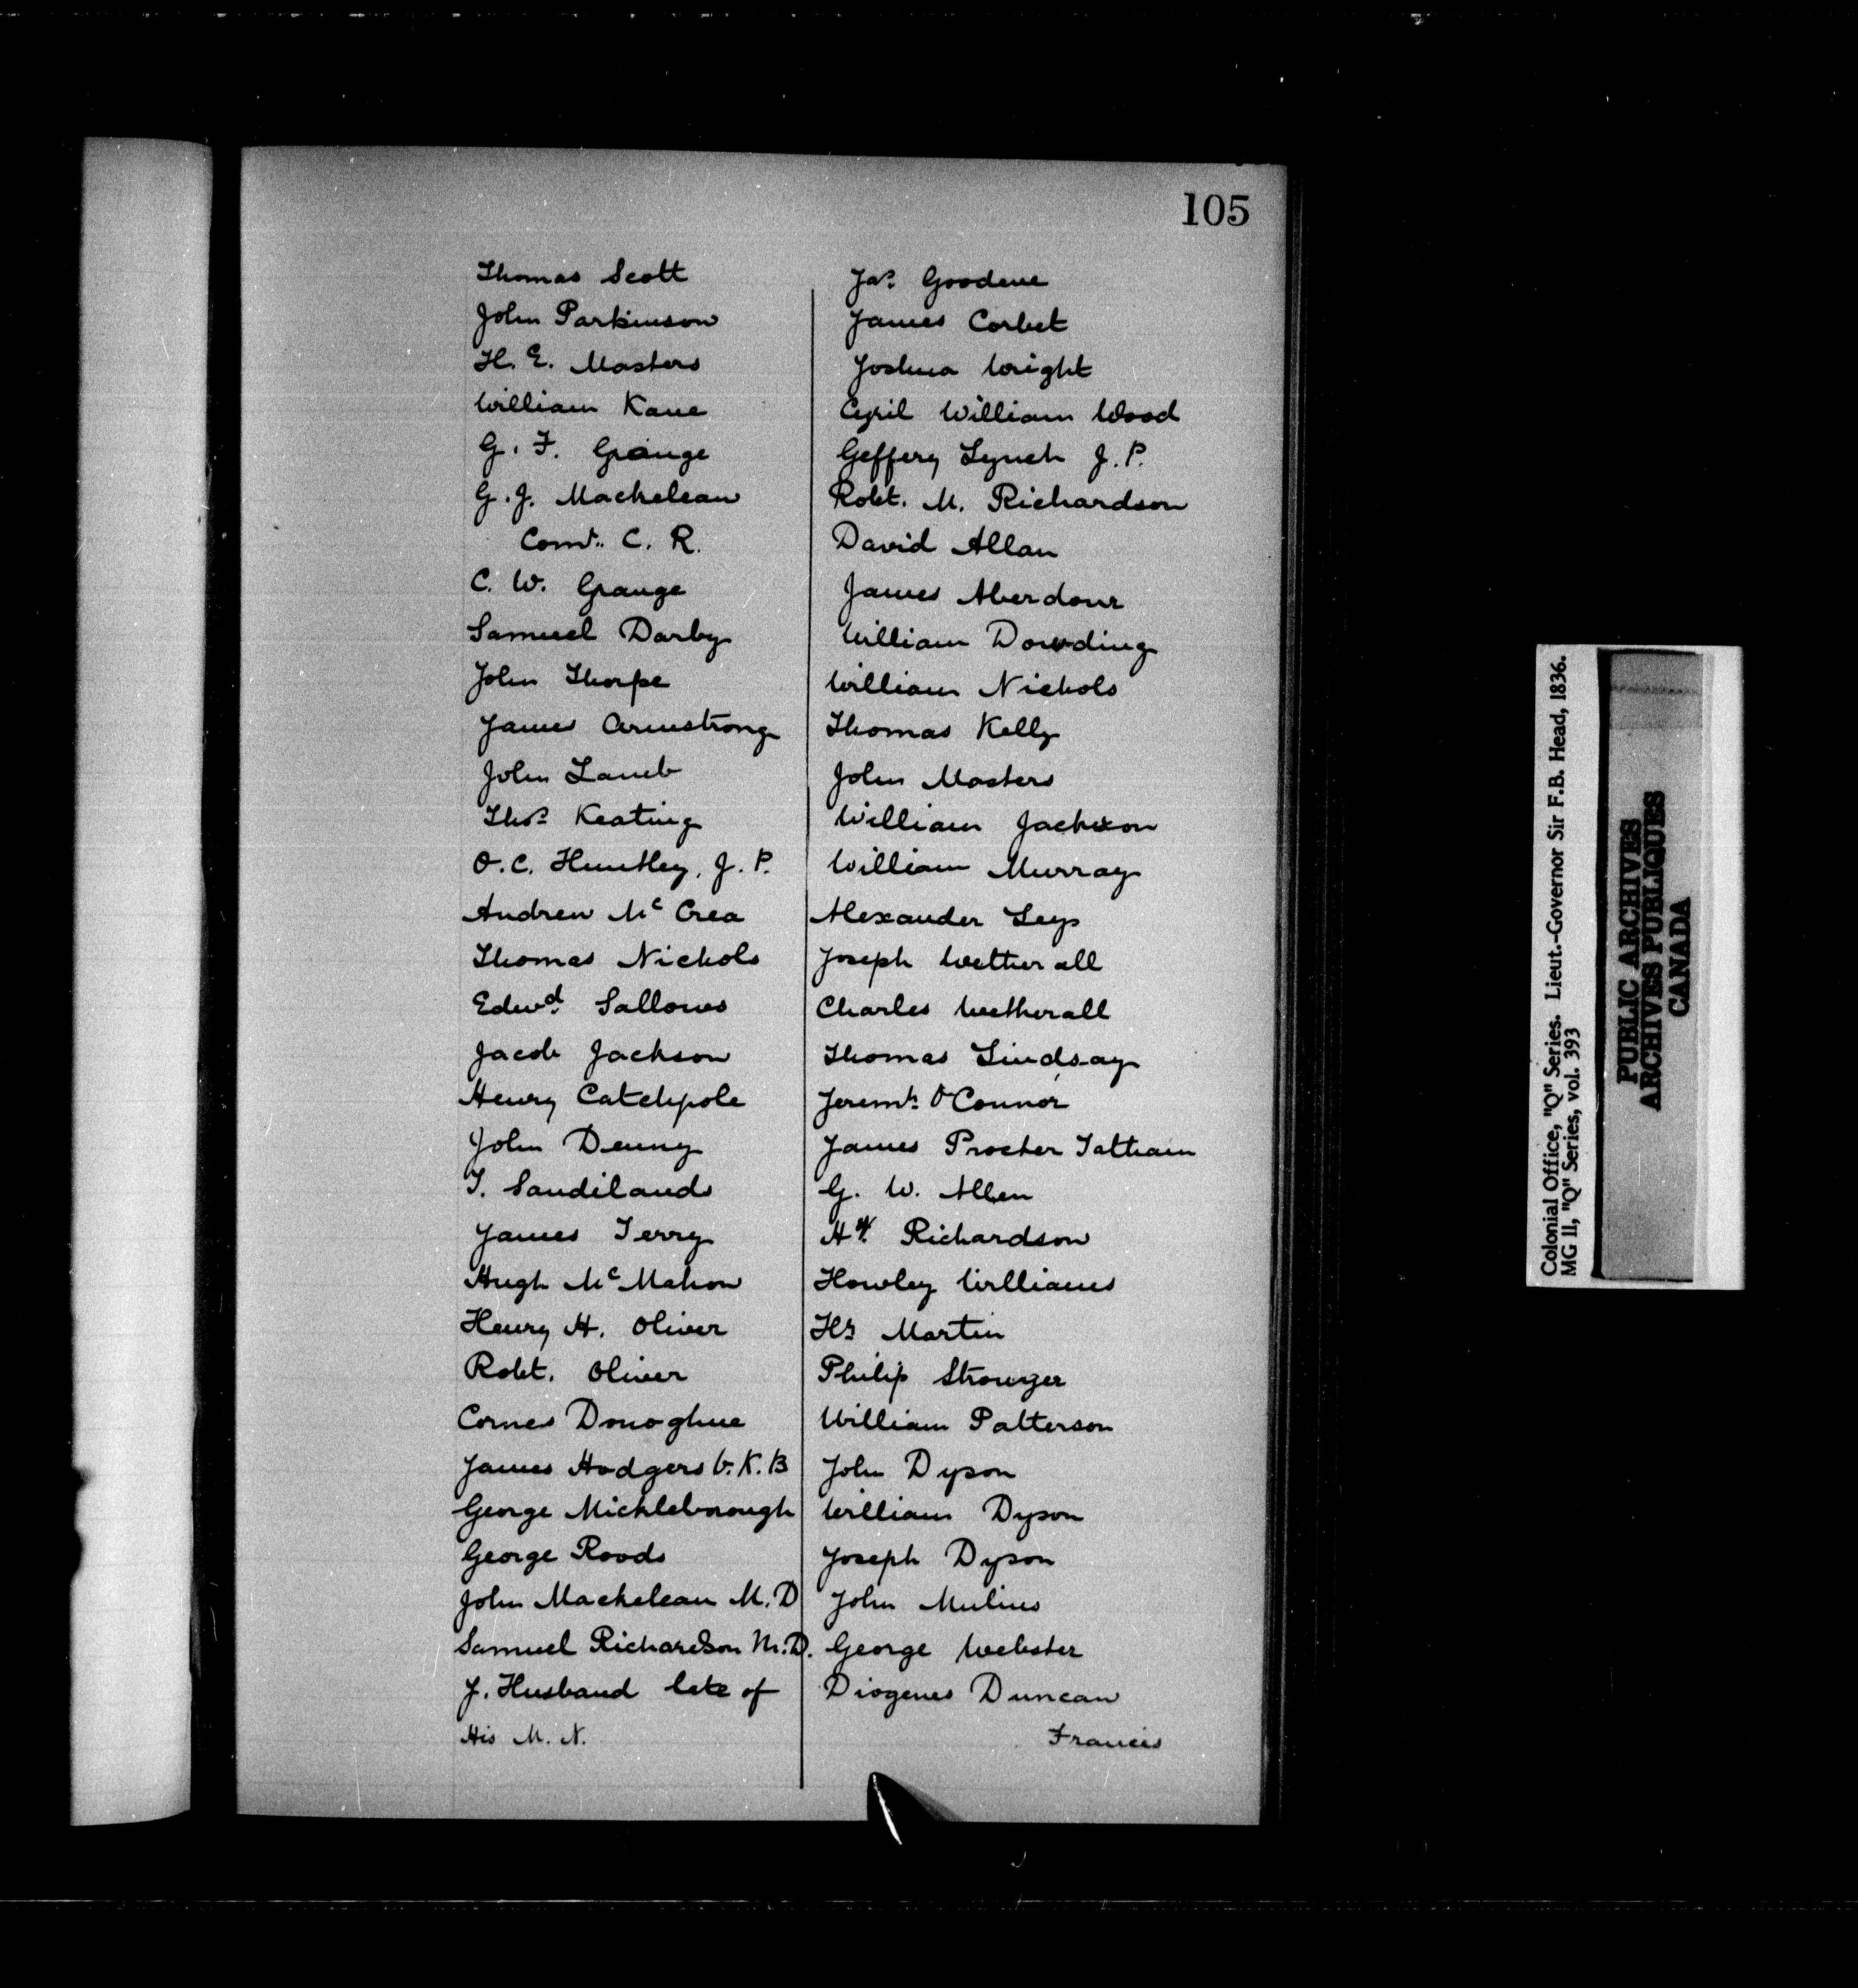 105
Thomas Scott
John Parkinson
H. E. Masters
William Kane
G. F. Grange
G. J. Mackelcan
Comr. C. R.
C. W. Grange
Samuel Darby
John Thorpe
James Armstrong
John Lamb
Thos Keating
O. C. Huntley, J. P.
Andrew Mc Crea
Thomas Nichols
Edwd. Sallows
Jacob Jackson
Henry Catchpole
John Denny
T. Sandilands
James Terry
Hugh McMahon
Henry H. Oliver
Robt. Oliver
Cornes Donoghue
James Hodgers V. K. B
George Mickleborough
George Roods
John Mackelcan M. D
Samuel Richardson M. D.
J. Husband late of
His M. N.
Jas Goodeve
James Corbet
Joshua Wright
Cyril William Wood
Geffery Lynch J. P.
Robt. M. Richardson
David Allan
James Aberdour
William Dowding
William Nichols
Thomas Kelly
John Masters
William Jackson
William Murray
Alexander Leys
Joseph Wetherall
Charles Wetherall
Thomas Lindsay
Jeremh O'Connor
James Procter Tatham
G. W. Allen
Hy. Richardson
Howley Williams
Hy Martin
Philip Strowger
William Patterson
John Dyson
William Dyson
Joseph Dyson
John Mulins
George Webster
Diogenes Duncan
Francis
Colonial Office, "Q" Series. Lieut.-Governor Sir F.B. Head, 1836.
MG 11, "Q" Series, vol. 393
PUBLIC ARCHIVES
ARCHIVES PUBLIQUES
CANADA